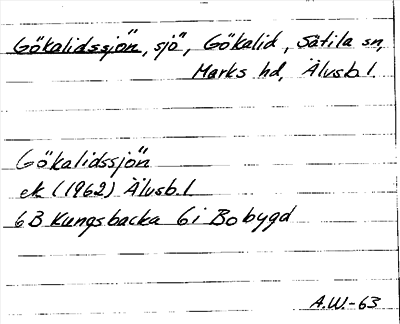 Gökalidssjön, sjö, Gökalid, Sätila sn,
Marks hd, Älvsb.l.
Gökalidssjön
ek (1962) Älvsb.l
6B Kungsbacka 6i Bobygd
A.W.-63